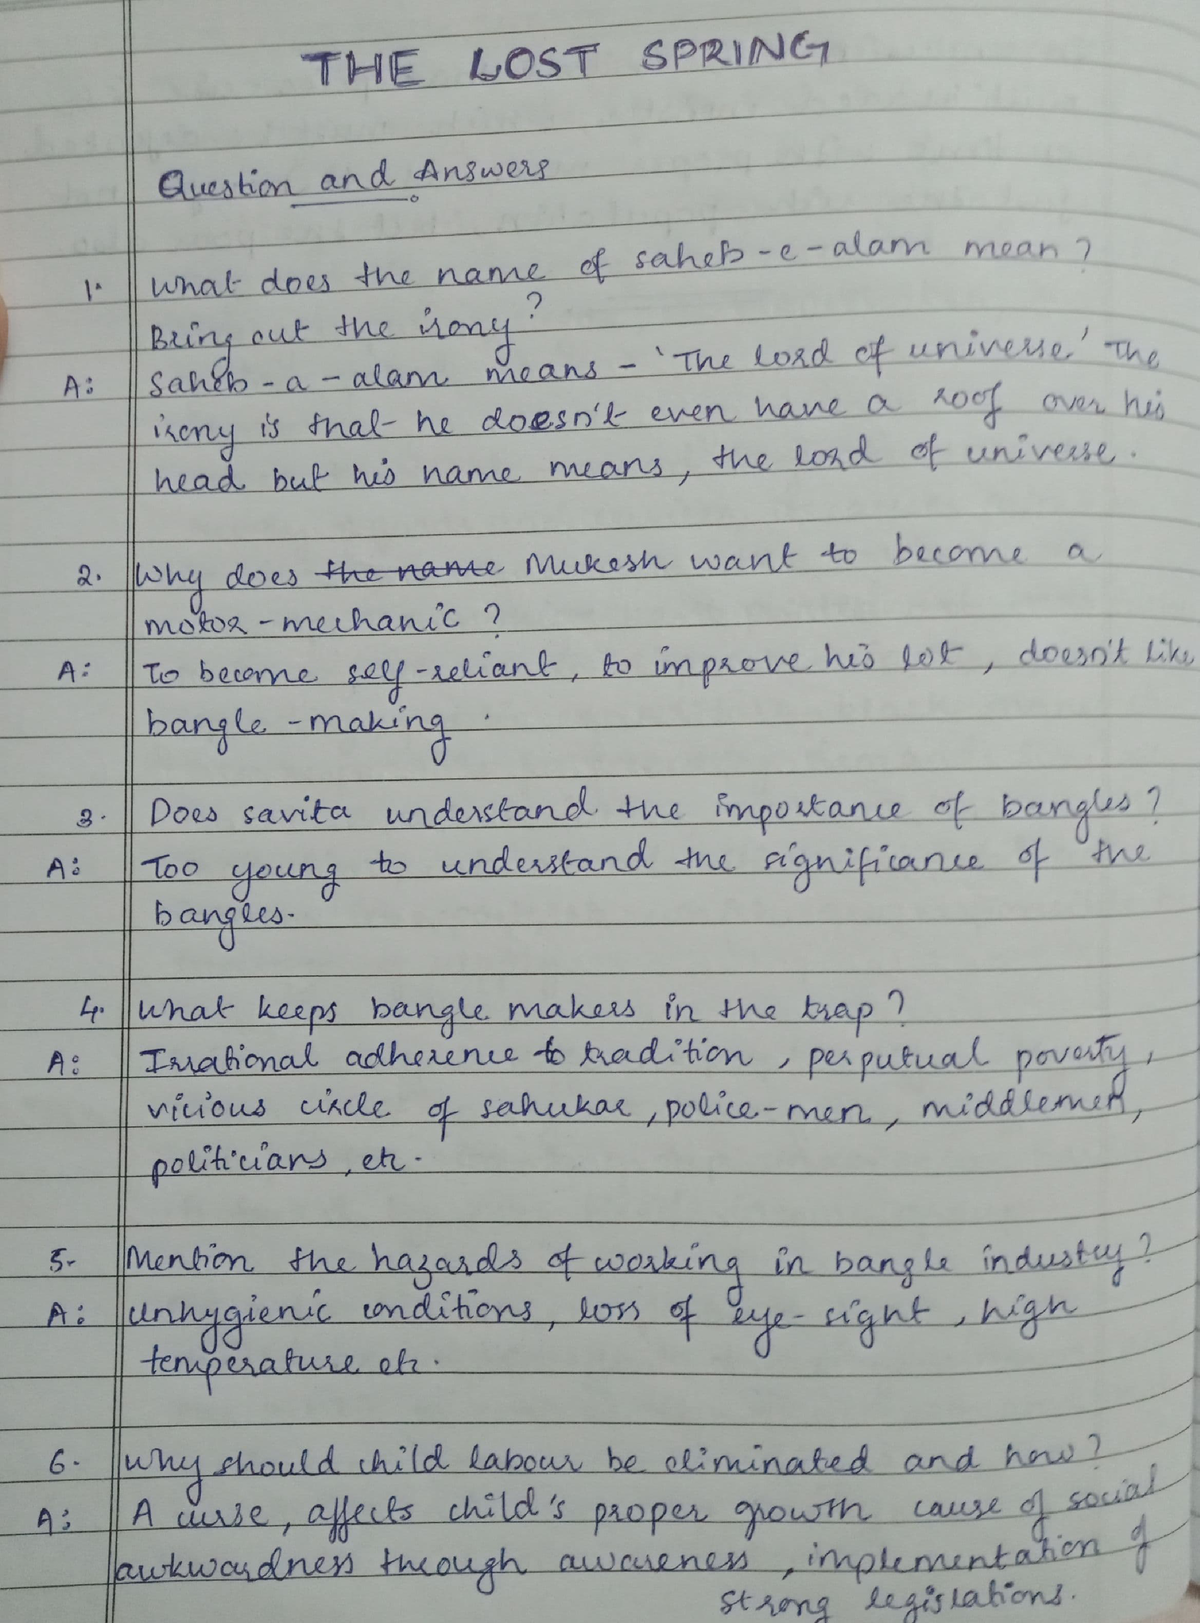 THE LOST SPRING
Question and Answers
1. What does the name of saheb-e-alam mean?
Bring out the irony?
A: Saheb-a-alam means - 'The lord of universe.' The
irony is that he doesn't even have a roof over his
head but his name means, the lord of universe.
2. Why does the name Mukesh want to become a
motor-mechanic?
A: To become self-reliant, to improve his lot, doesn't like
bangle-making.
3. Does savita understand the importance of bangles?
A: Too young to understand the significance of the
bangles.
4. What keeps bangle makers in the trap?
A: Irrational adherence to tradition, perputual poverty,
vicious circle of sahukar, police-men, middlemen,
politicians, etc.
5. Mention the hazards of working in bangle industry?
A: Unhygienic conditions, loss of eye-sight, high
temperature etc.
6. Why should child labour be eliminated and how?
A: A curse, affects child's proper growth cause of social
awkwardness through awareness, implementation of
strong legislations.